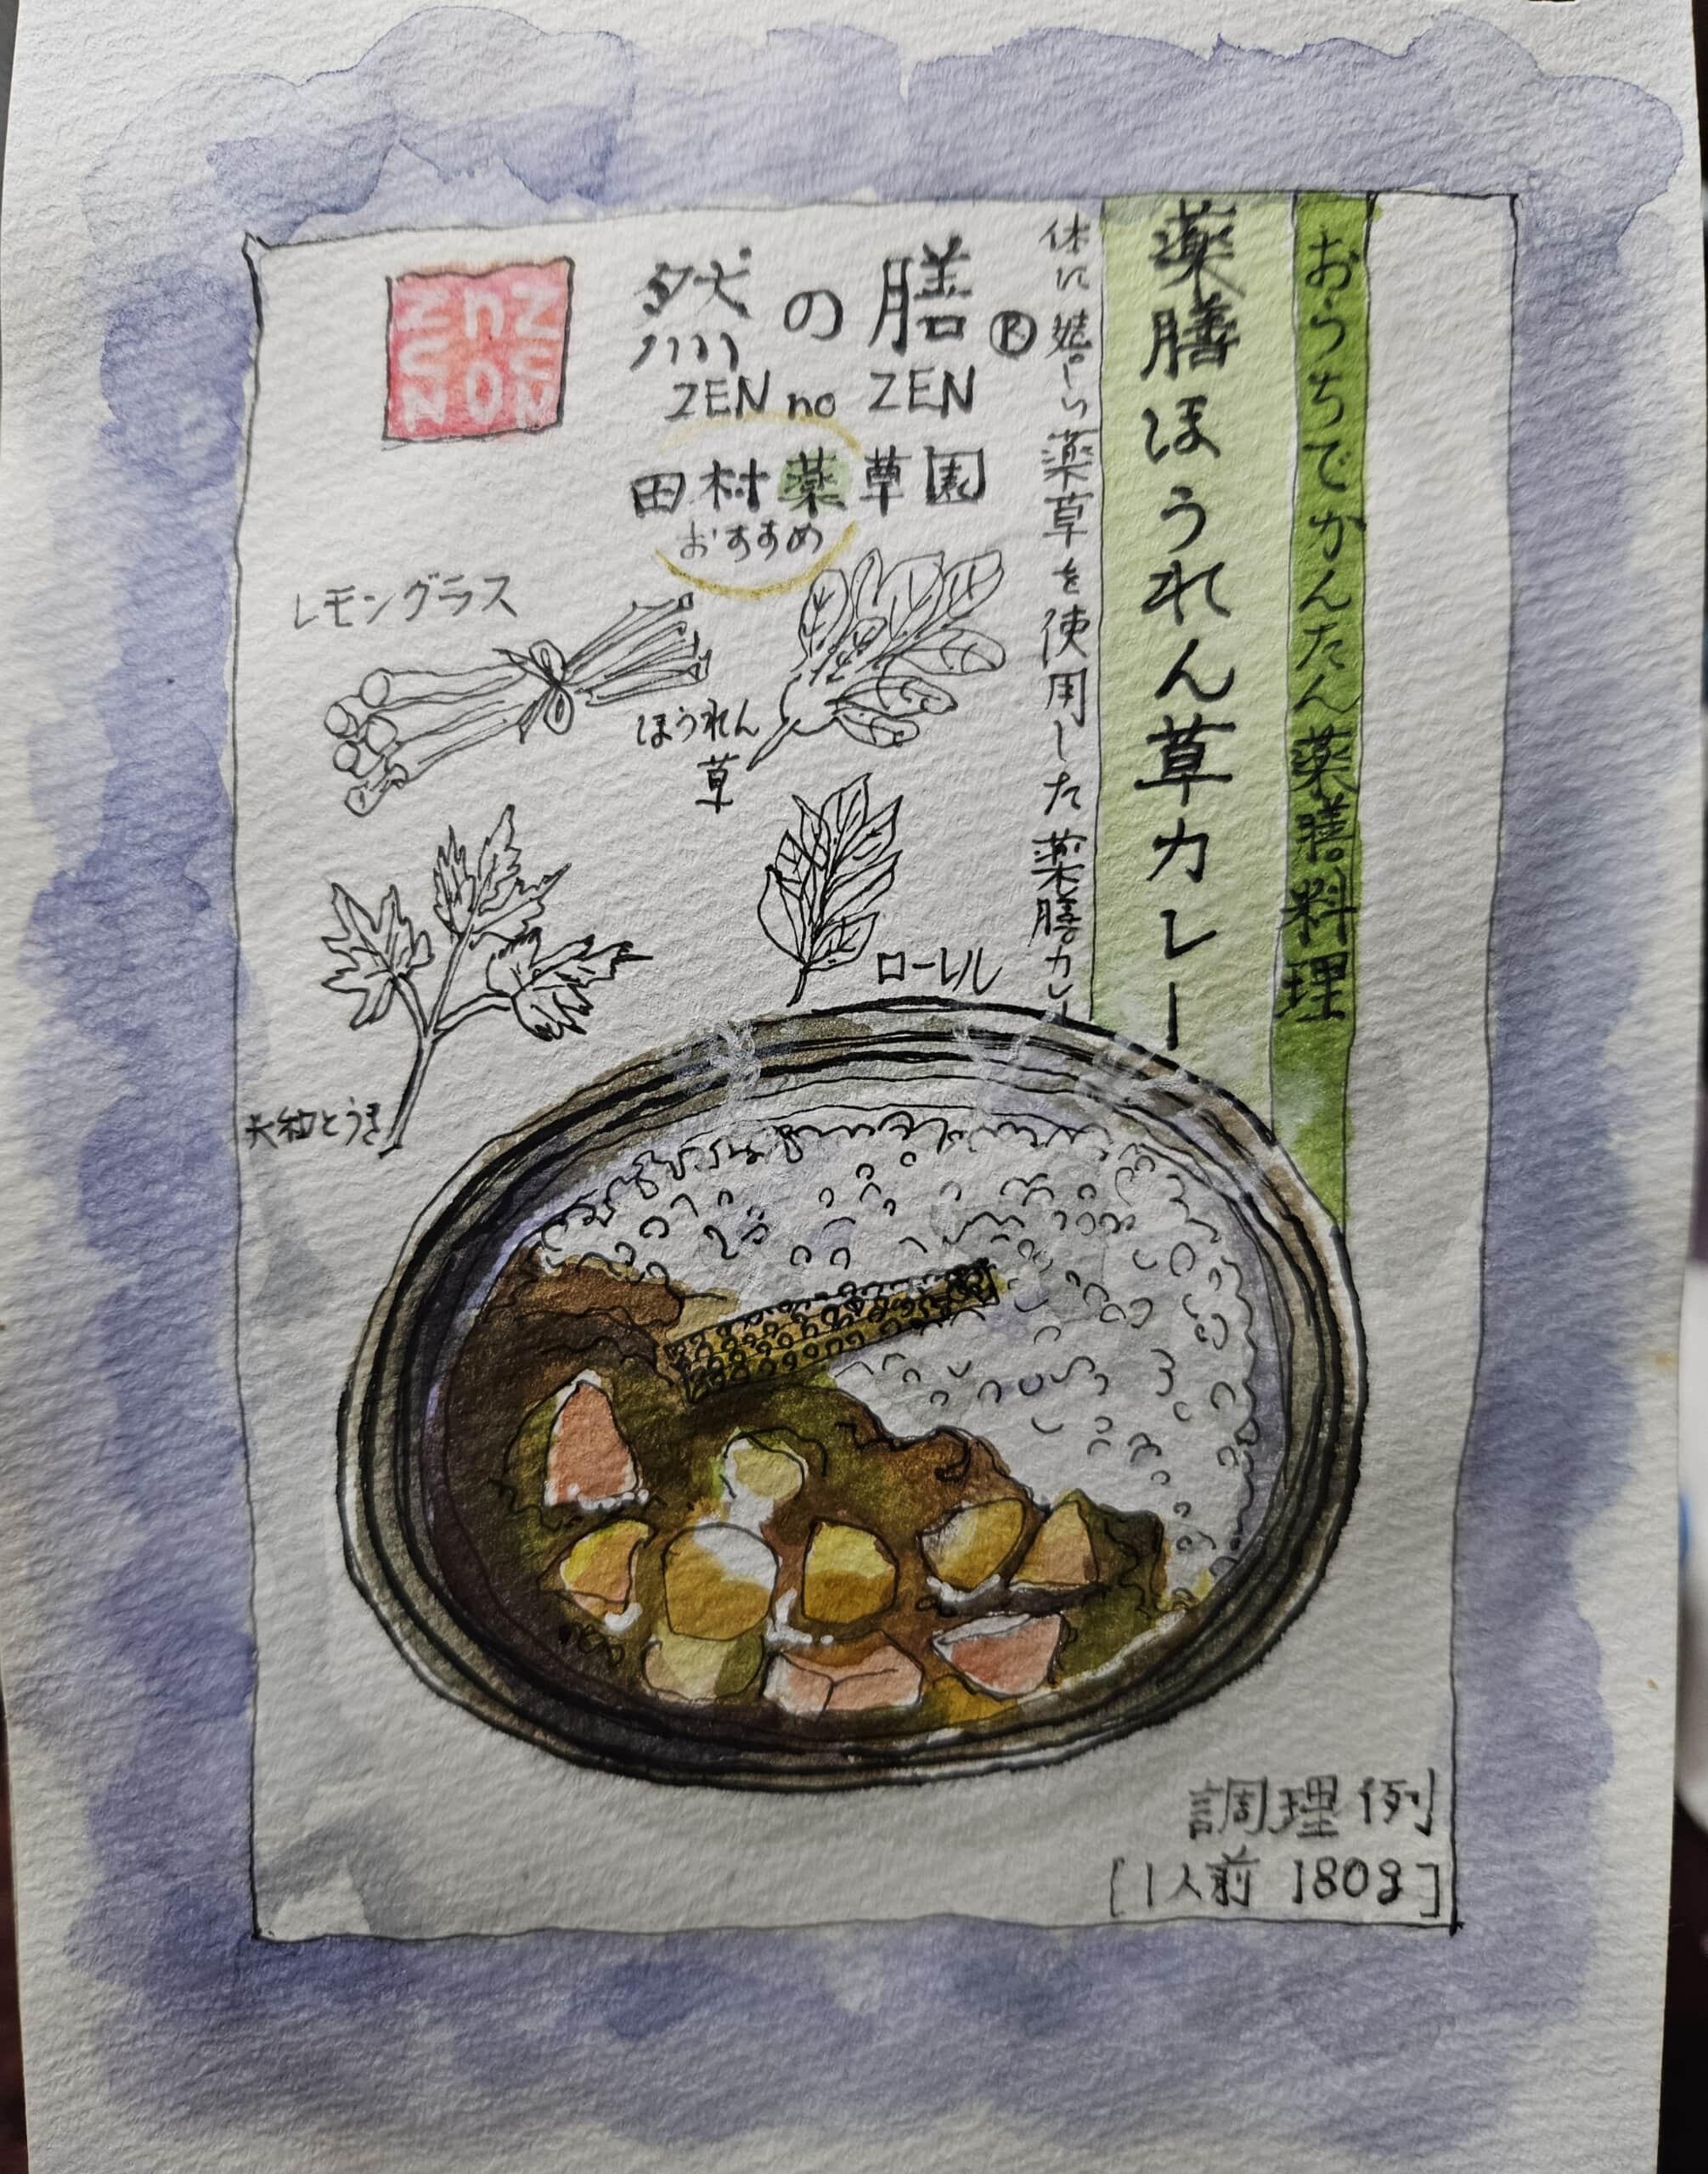 おうちでかんたん薬膳料理
薬膳ほうれん草カレー
体に嬉しい薬草を使用した薬膳カレー
然の膳®
ZEN no ZEN
田村薬草園
おすすめ
ZnZ
EOE
NON
レモングラス
ほうれん
草
ローレル
大和とうき
調理例
[1人前 180g]